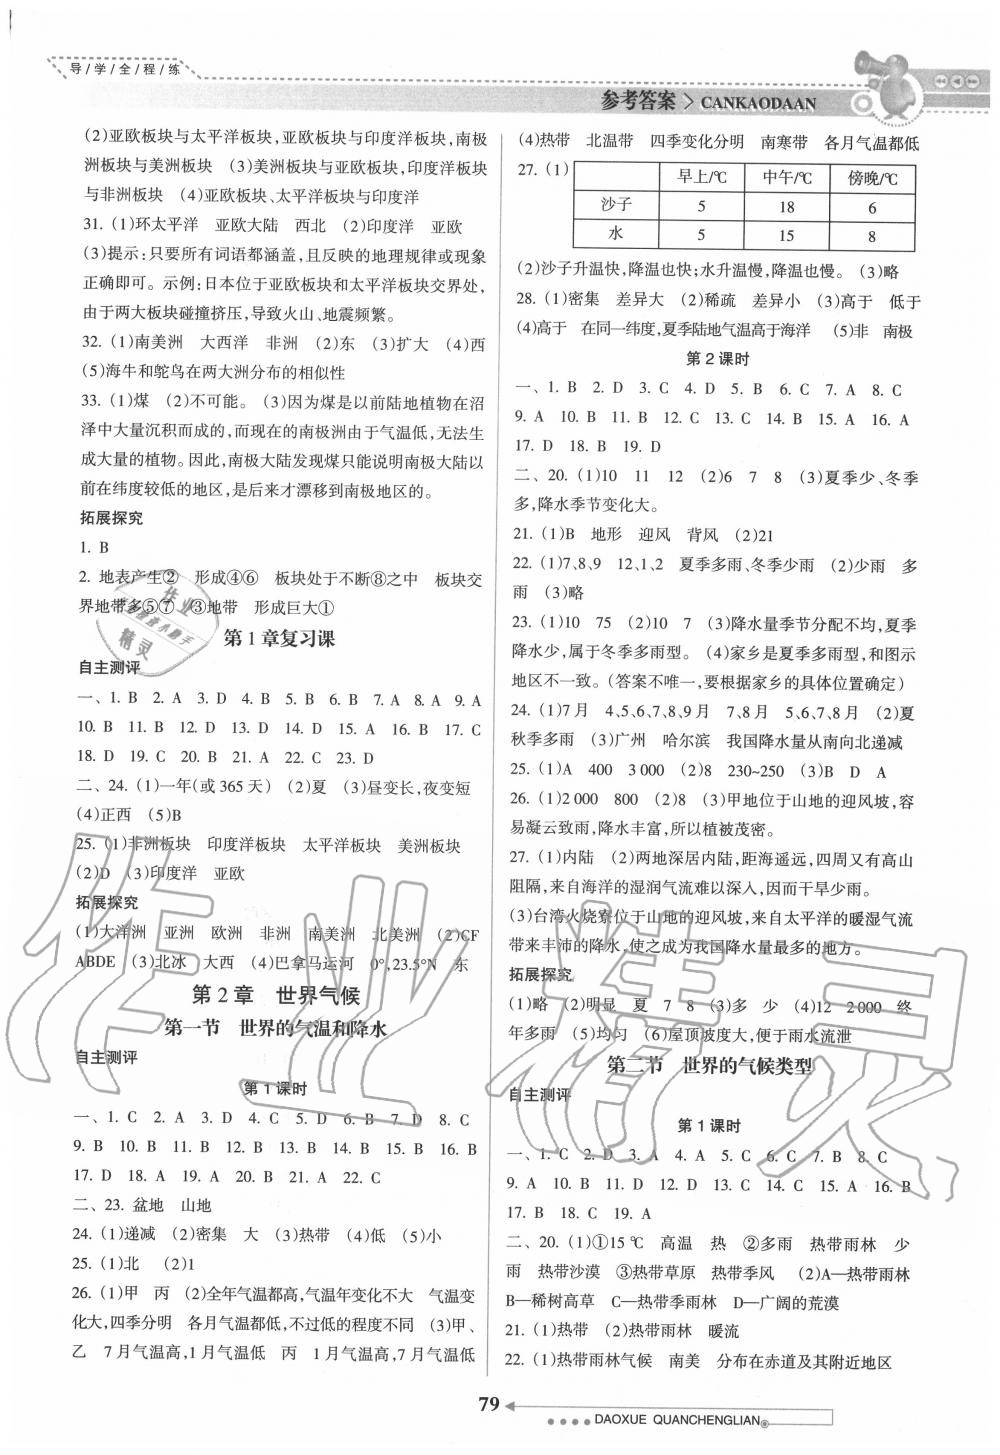 导/学/全/程/练
参考答案 > CANKAODAAN
(2)亚欧板块与太平洋板块,亚欧板块与印度洋板块,南极
洲板块与美洲板块 (3)美洲板块与亚欧板块,印度洋板块
与非洲板块 (4)亚欧板块、太平洋板块与印度洋
31. (1)环太平洋 亚欧大陆 西北 (2)印度洋 亚欧
(3)提示:只要所有词语都涵盖,且反映的地理规律或现象
正确即可。示例:日本位于亚欧板块和太平洋板块交界处,
由于两大板块碰撞挤压,导致火山、地震频繁。
32. (1)南美洲 大西洋 非洲 (2)东 (3)扩大 (4)西
(5)海牛和鸵鸟在两大洲分布的相似性
33. (1)煤 (2)不可能。 (3)因为煤是以前陆地植物在沼
泽中大量沉积而成的,而现在的南极洲由于气温低,无法生
成大量的植物。因此,南极大陆发现煤只能说明南极大陆以
前在纬度较低的地区,是后来才漂移到南极地区的。
拓展探究
1. B
2. 地表产生② 形成④⑥ 板块处于不断⑧之中 板块交
界地带多⑤⑦ ③地带 形成巨大①
第1章复习课
自主测评
一、1. B 2. A 3. D 4. B 5. B 6. B 7. A 8. A 9. A
10. B 11. B 12. D 13. D 14. D 15. A 16. B 17. C
18. D 19. C 20. B 21. A 22. C 23. D
二、24. (1)一年(或365天) (2)夏 (3)昼变长,夜变短
(4)正西 (5)B
25. (1)非洲板块 印度洋板块 太平洋板块 美洲板块
(2)D (3)印度洋 亚欧
拓展探究
(1)大洋洲 亚洲 欧洲 非洲 南美洲 北美洲 (2)CF
ABDE (3)北冰 大西 (4)巴拿马运河 0°,23.5°N 东
第2章 世界气候
第一节 世界的气温和降水
自主测评
第1课时
一、1. C 2. A 3. D 4. C 5. D 6. B 7. D 8. C
9. B 10. B 11. B 12. B 13. B 14. B 15. B 16. B
17. D 18. A 19. A 20. B 21. A 22. C
二、23. 盆地 山地
24. (1)递减 (2)密集 大 (3)热带 (4)低 (5)小
25. (1)北 (2)1
26. (1)甲 丙 (2)全年气温都高,气温年变化不大 气温变
化大,四季分明 各月气温都低,不过低的程度不同 (3)甲、
乙 7月气温高,1月气温低 丙 1月气温高,7月气温低
(4)热带 北温带 四季变化分明 南寒带 各月气温都低
27. (1)
早上/℃ 中午/℃ 傍晚/℃
沙子 5 18 6
水 5 15 8
(2)沙子升温快,降温也快;水升温慢,降温也慢。 (3)略
28. (1)密集 差异大 (2)稀疏 差异小 (3)高于 低于
(4)高于 在同一纬度,夏季陆地气温高于海洋 (5)非 南极
第2课时
一、1. B 2. D 3. C 4. D 5. B 6. C 7. A 8. C
9. A 10. B 11. B 12. C 13. C 14. B 15. A 16. A
17. D 18. B 19. D
二、20. (1)10 11 12 (2)6 7 8 (3)夏季少、冬季
多,降水季节变化大。
21. (1)B 地形 迎风 背风 (2)21
22. (1)7、8、9 12、1、2 夏季多雨、冬季少雨 (2)少雨 多
雨 (3)略
23. (1)10 75 (2)10 7 (3)降水量季节分配不均,夏季
降水少,属于冬季多雨型。 (4)家乡是夏季多雨型,和图示
地区不一致。(答案不唯一,要根据家乡的具体位置确定)
24. (1)7月 4、5、6、7、8、9月 7、8月 5、6、7、8月 (2)夏
秋季多雨 (3)广州 哈尔滨 我国降水量从南向北递减
25. (1)A 400 3 000 (2)8 230~250 (3)B D A
26. (1)2 000 800 (2)8 (3)甲地位于山地的迎风坡,容
易凝云致雨,降水丰富,所以植被茂密。
27. (1)内陆 (2)两地深居内陆,距海遥远,四周又有高山
阻隔,来自海洋的湿润气流难以深入,因而干旱少雨。
(3)台湾火烧寮位于山地的迎风坡,来自太平洋的暖湿气流
带来丰沛的降水,使之成为我国降水量最多的地方。
拓展探究
(1)略 (2)明显 夏 7 8 (3)多 少 (4)12 2 000 终
年多雨 (5)均匀 (6)屋顶坡度大,便于雨水流泄
第二节 世界的气候类型
自主测评
第1课时
一、1. C 2. D 3. A 4. A 5. C 6. C 7. B 8. C
9. A 10. B 11. D 12. D 13. C 14. C 15. A 16. B
17. B 18. C 19. A
二、20. (1)①15℃ 高温 热 ②多雨 热带雨林 少
雨 热带沙漠 ③热带草原 热带季风 (2)A—热带雨林
B—稀树高草 C—热带季雨林 D—广阔的荒漠
21. (1)热带 (2)热带雨林 暖流
22. (1)热带雨林气候 南美 分布在赤道及其附近地区
79
DAOXUE QUANCHENGLIAN
作业精灵